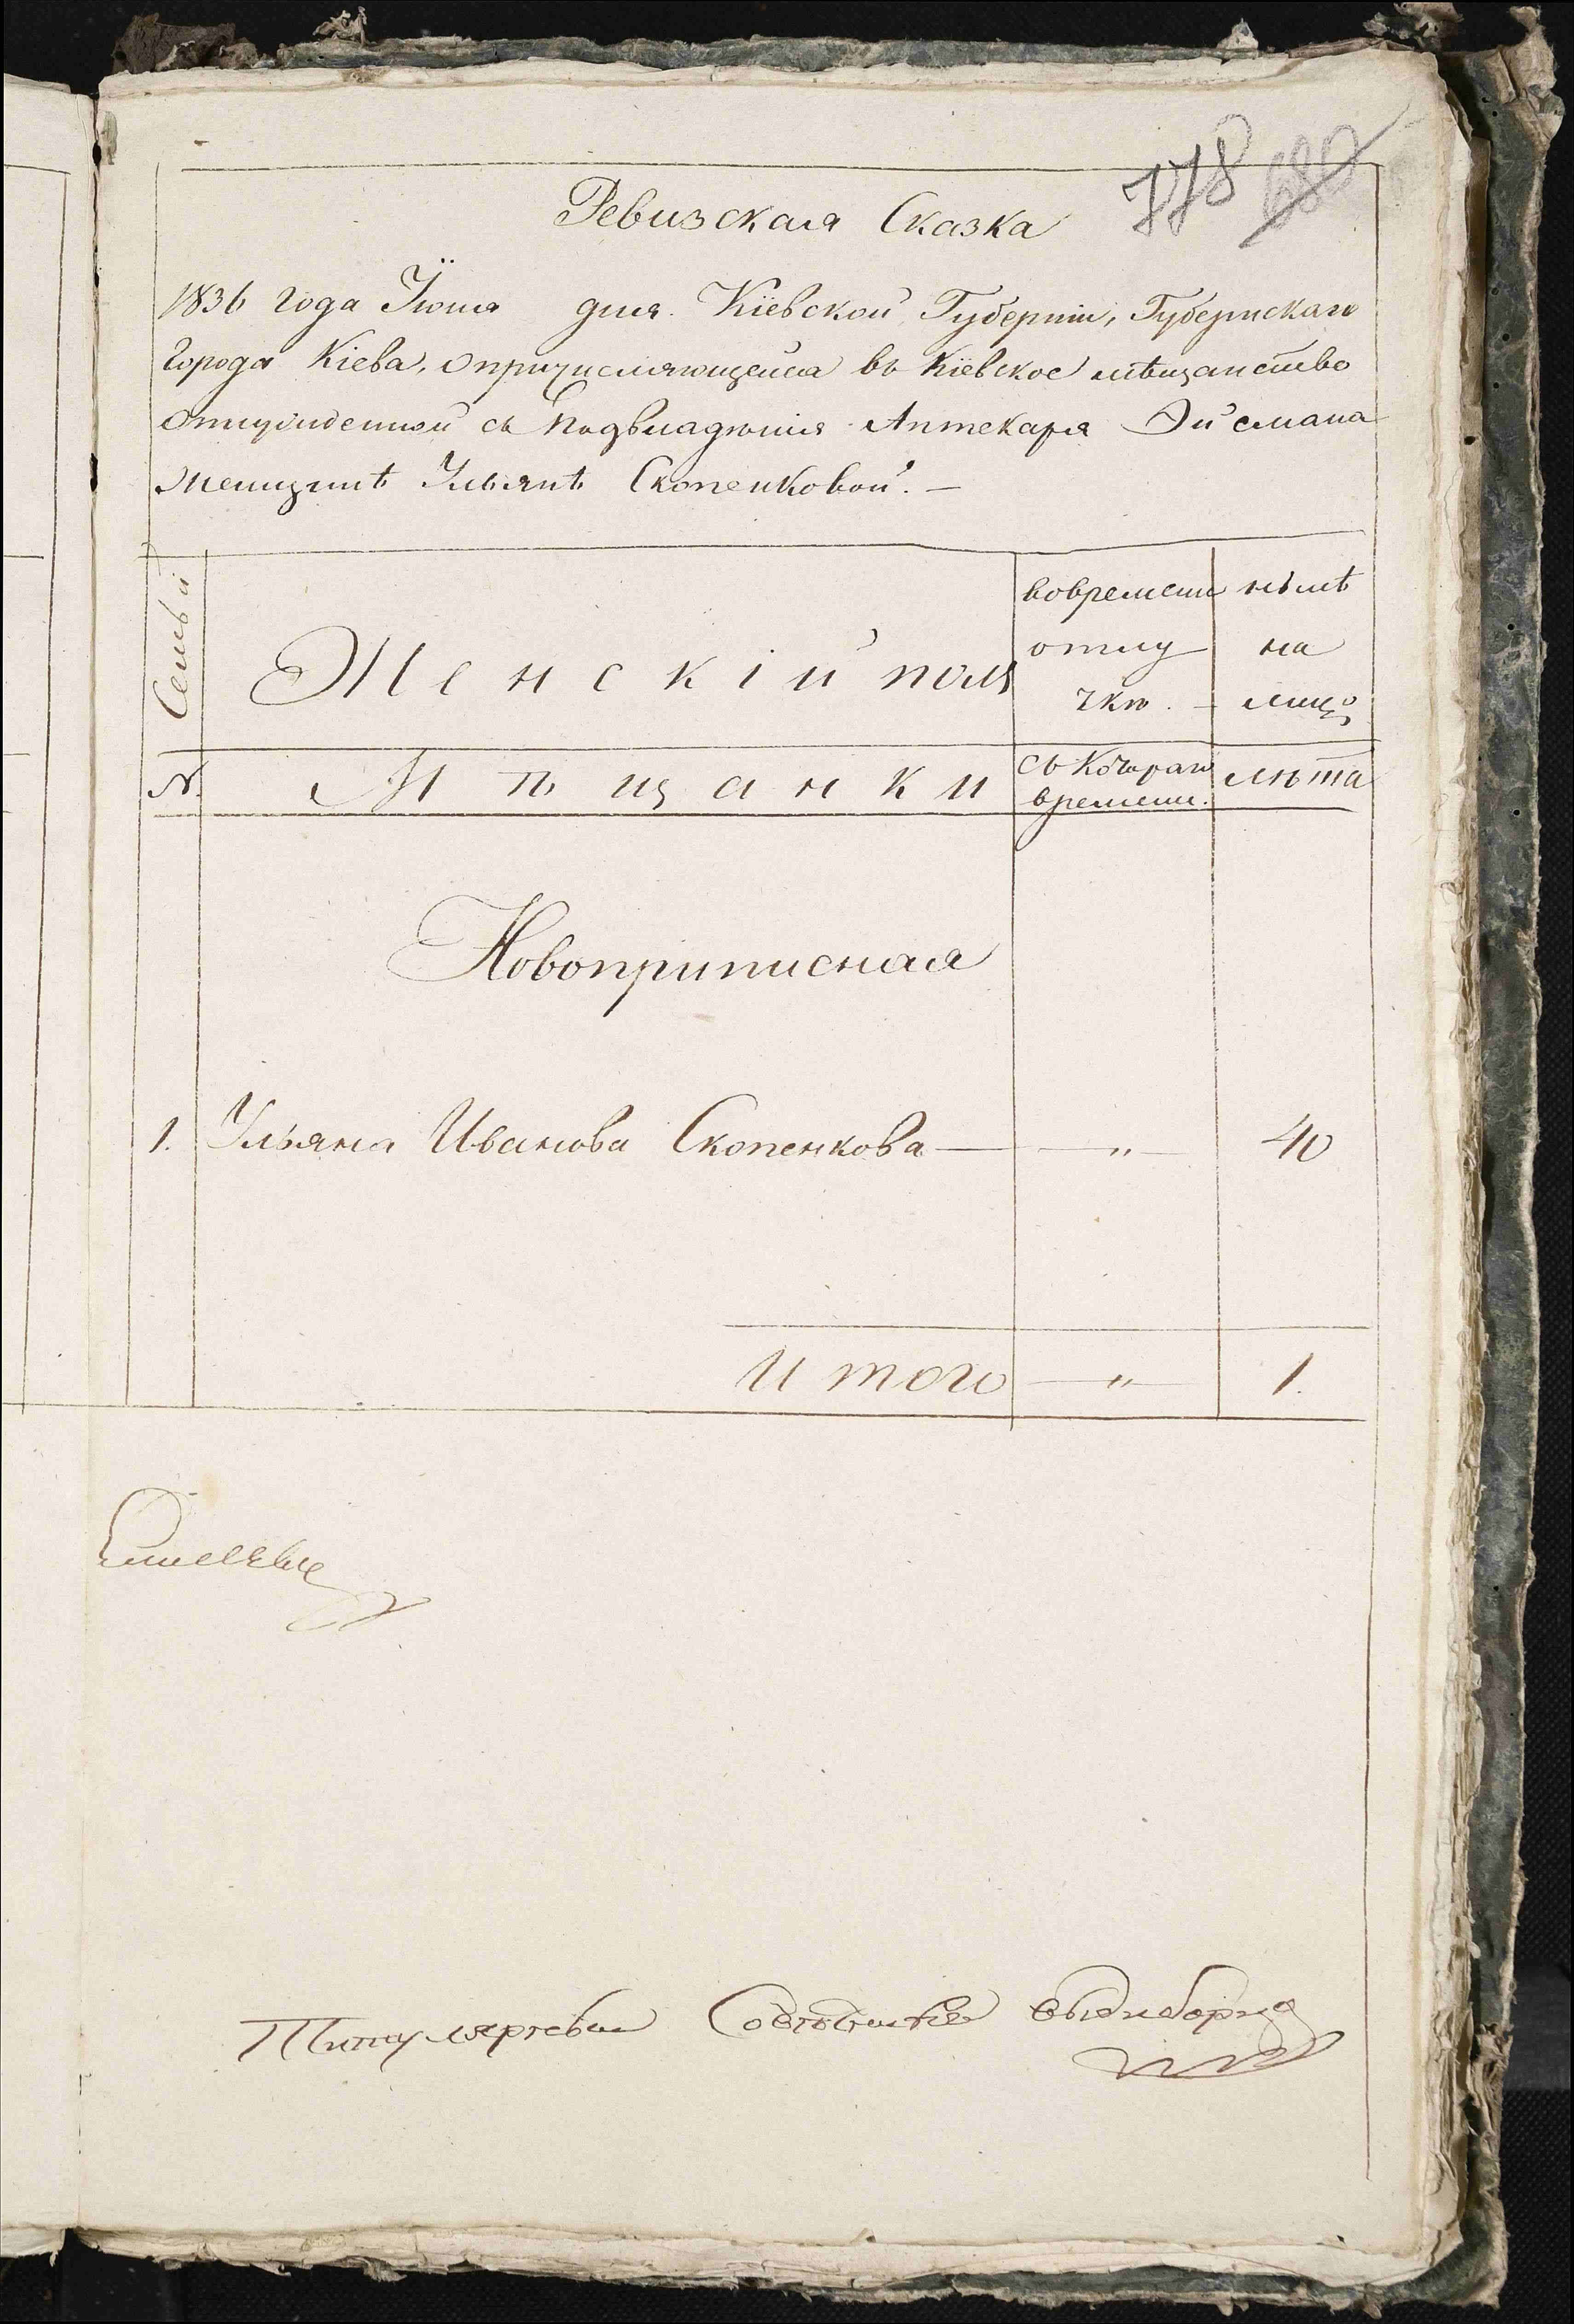 778 680
Ревизская Сказка
1836 года Іюня дня. Кіевской Губерніи, Губернскаго
Города Кіева, опричисляющейся въ Кіевское мѣщанство
отпущенной съ подвладѣнія Аптекаря Эйсмана
женщинѣ Ульянѣ Скопенковой. —
Семьи
Женскій полъ
вовременн отлу чкѣ.
нынѣ на лицо
№.
Мѣщанки
съ котораго времени.
лѣта
Новоприписная
1. Ульяна Иванова Скопенкова — — " — 40
Итого — " — 1.
Титулярный Совѣтникъ